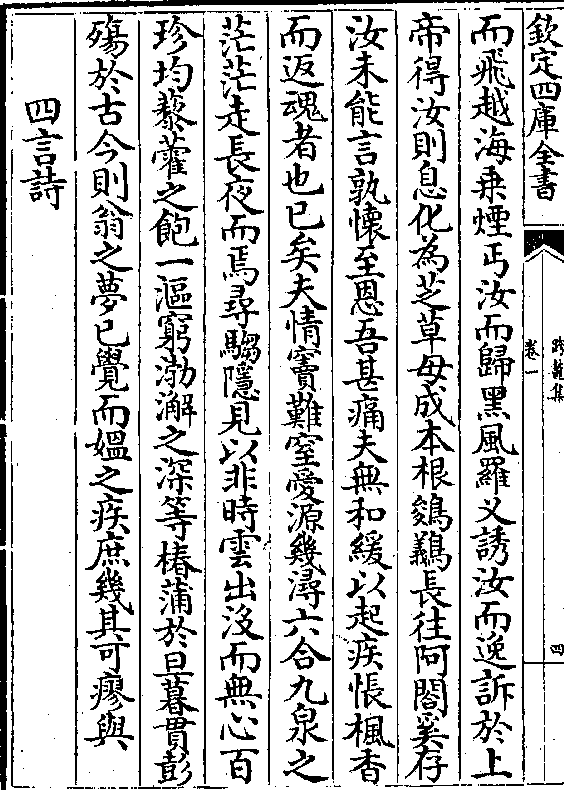 欽定四庫全書
卷一
四
而飛越海乗煙丐汝而歸黑風羅乂誘汝而逸訴於上
帝得汝則息化為芝草毋成本根鷄鸛長往阿閣奚存
汝未能言孰懷至恩吾甚痛夫無和緩以起疾悵楓香
而返魂者也已矣夫情竇難窒愛源幾潯六合九泉之
茫茫走長夜而焉尋騶隱見以非時雲出没而無心百
珍均藜藿之飽一漚窮渤澥之深等椿蒲於旦暮貫彭
殤於古今則翁之夢已覺而媪之疾庶幾其可瘳與
四言詩